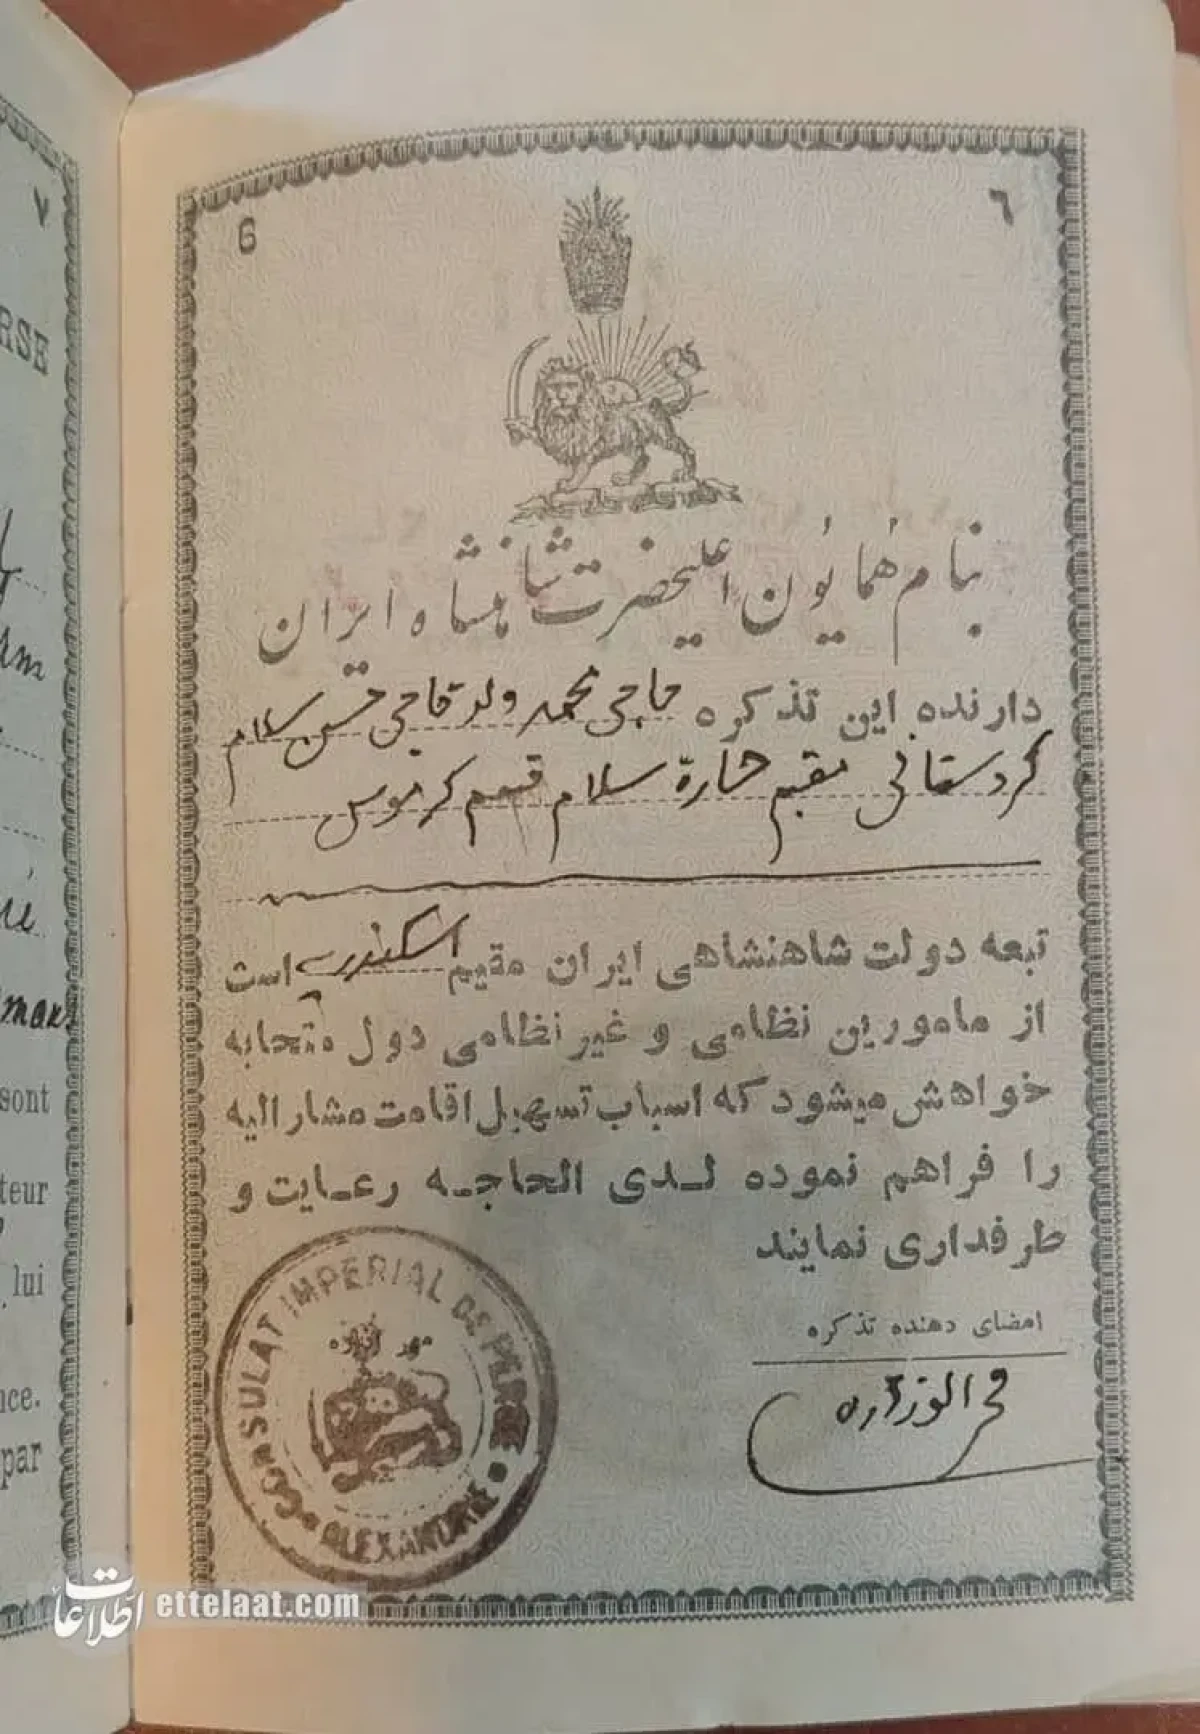 6
٦
بنام همایون اعلیحضرت شاهنشاه ایران
دارنده این تذکره حاجی محمد ولد حاجی حسن سلام
کردستانی مقیم حارة سلام قسم کرموس
تبعه دولت شاهنشاهی ایران مقیم اسکندریه است
از مامورین نظامی و غیر نظامی دول متحابه
خواهش میشود که اسباب تسهیل اقامت مشارالیه
را فراهم نموده لدی الحاجه رعایت و
طرفداری نمایند
امضای دهنده تذکره
الوزاره
CONSULAT IMPERIAL DE PERSE
ALEXANDRIE
۷
RSE
sont
teur
lui
nce.
par
اطلاعات ettelaat.com